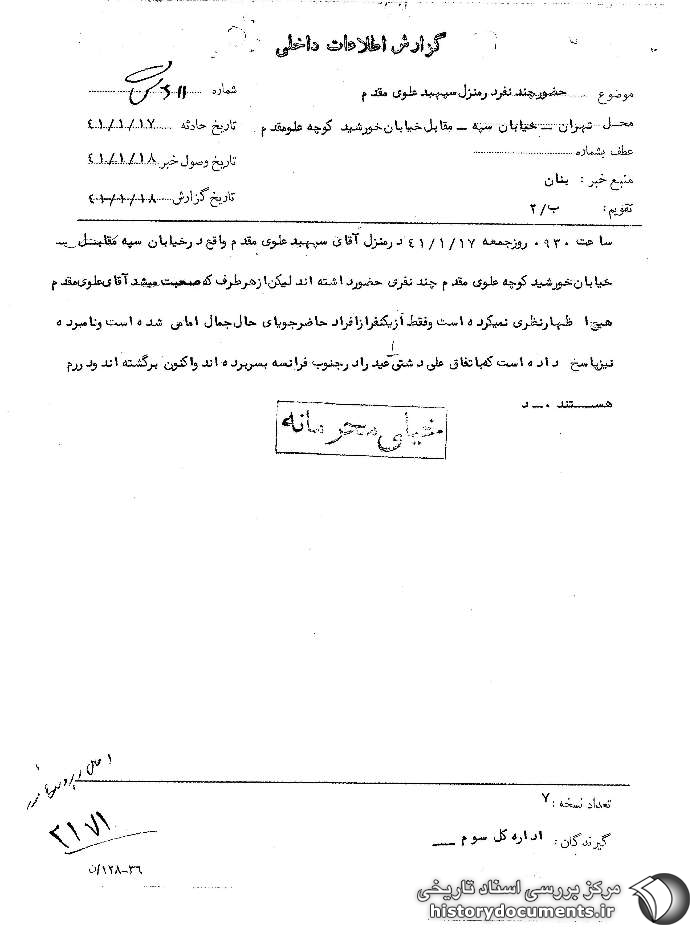 گزارش اطلاعات داخلی
موضوع حضور چند نفر در منزل سپهبد علوی مقدم
شماره
محل تهران – خیابان سپه – مقابل خیابان خورشید کوچه علوی مقدم
تاریخ حادثه ۴۱/۱/۱۷
عطف بشماره
تاریخ وصول خبر ۴۱/۱/۱۸
منبع خبر : بنان
تقویم : ب/۲
تاریخ گزارش ۴۱/۱/۱۸
ساعت ۰۹۳۰ روز جمعه ۴۱/۱/۱۷ در منزل آقای سپهبد علوی مقدم واقع در خیابان سپه مقابل –
خیابان خورشید کوچه علوی مقدم چند نفری حضور داشته اند لیکن از هر طرف که صحبت میشد آقای علوی مقدم
هیچ اظهار نظری نمیکرده است و فقط از یکنفر از افراد حاضر جویای حال جمال امامی شده است و نامبرده
نیز پاسخ داده است که باتفاق علی دشتی عید را در جنوب فرانسه بسر برده اند و اکنون برگشته اند و در رم
هستند ۰ – د
خیلی محرمانه
تعداد نسخه : ۷
گیرندگان : اداره کل سوم –
۳۱۷۱
۳۶–۱۲۸/ن
مرکز بررسی اسناد تاریخی
historydocuments.ir